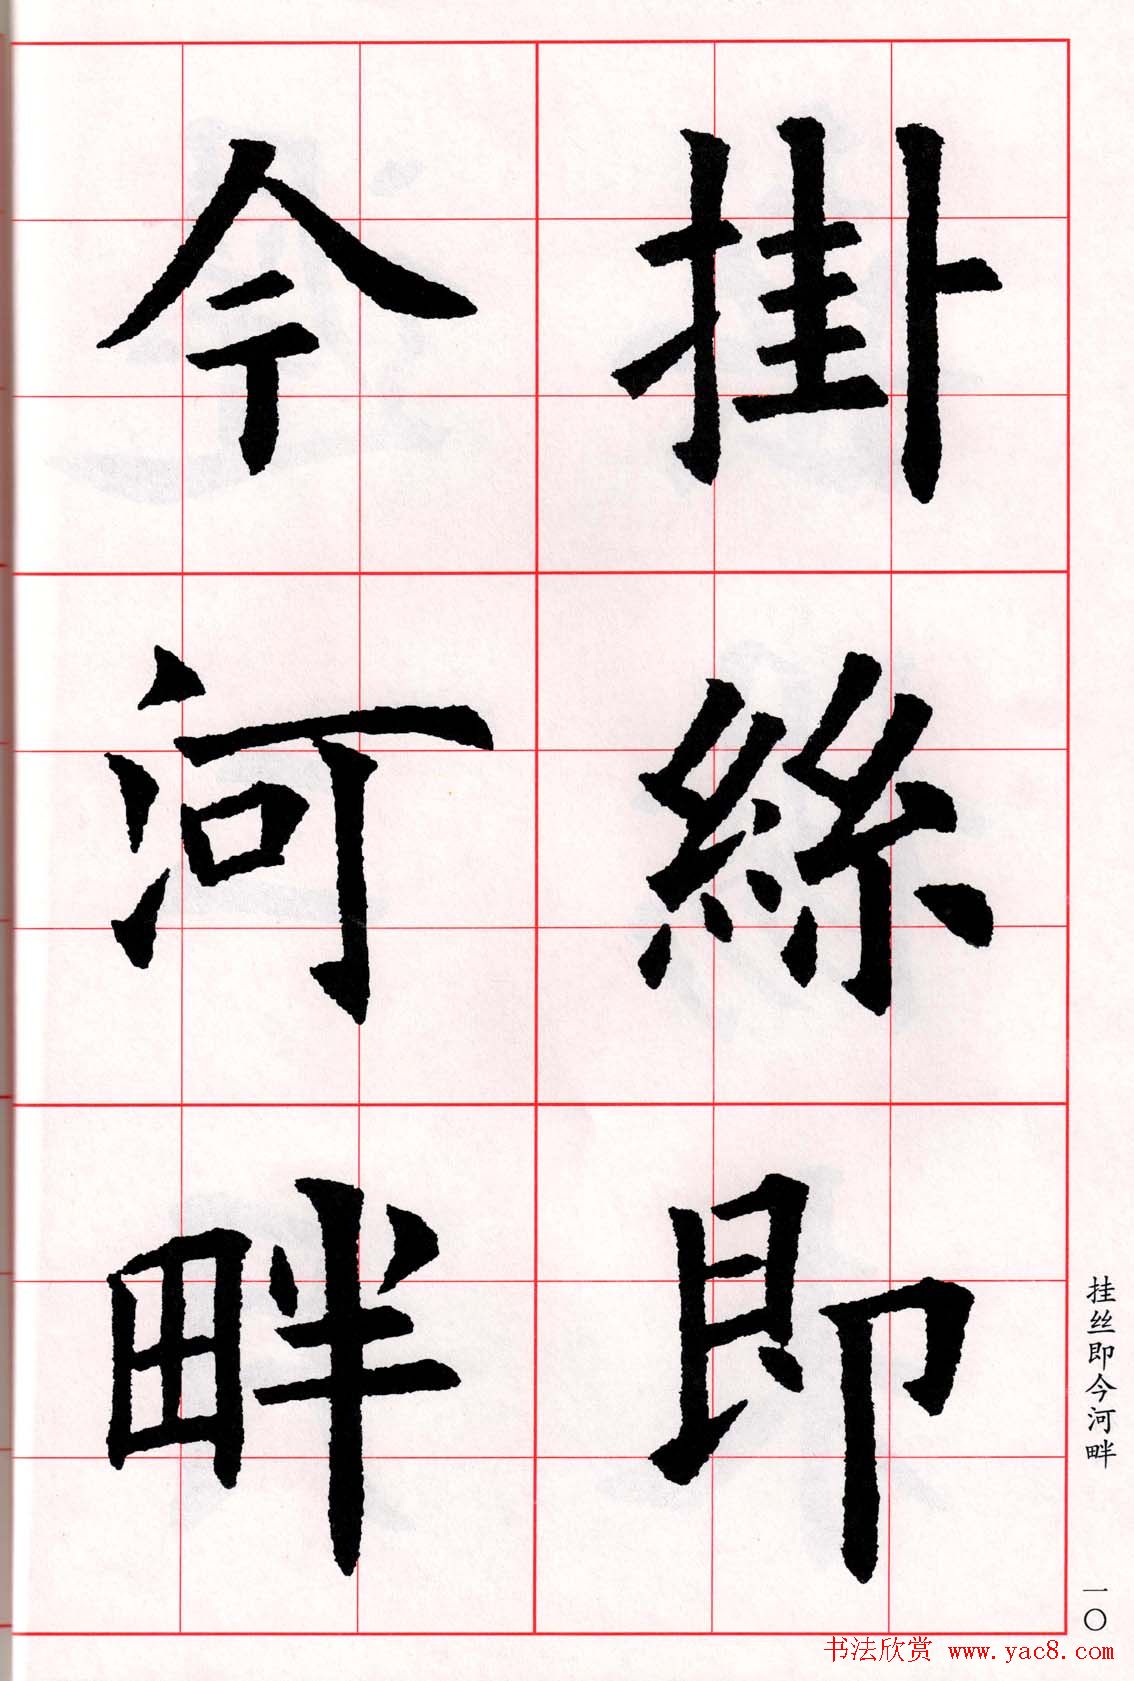 掛絲即
今河畔
挂丝即今河畔
一〇
书法欣赏 www.yac8.com